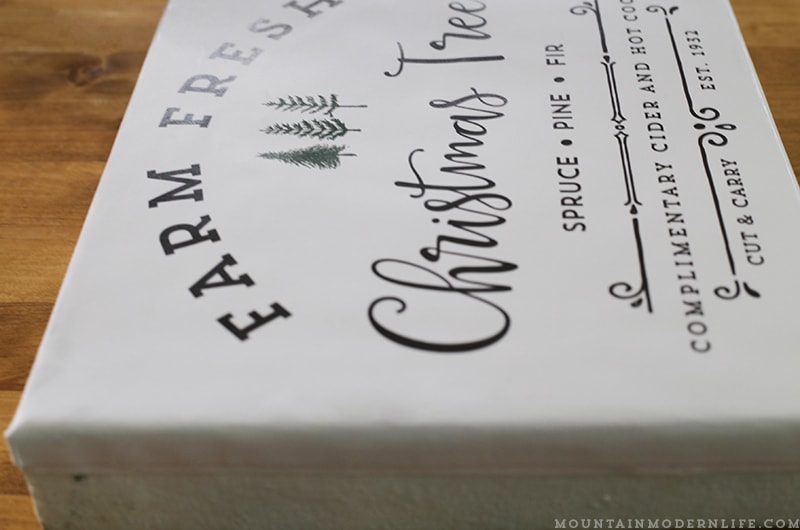 FARM FRESH
Christmas Tree
SPRUCE • PINE • FIR
COMPLIMENTARY CIDER AND HOT COC
CUT & CARRY EST. 1932
MOUNTAINMODERNLIFE.COM